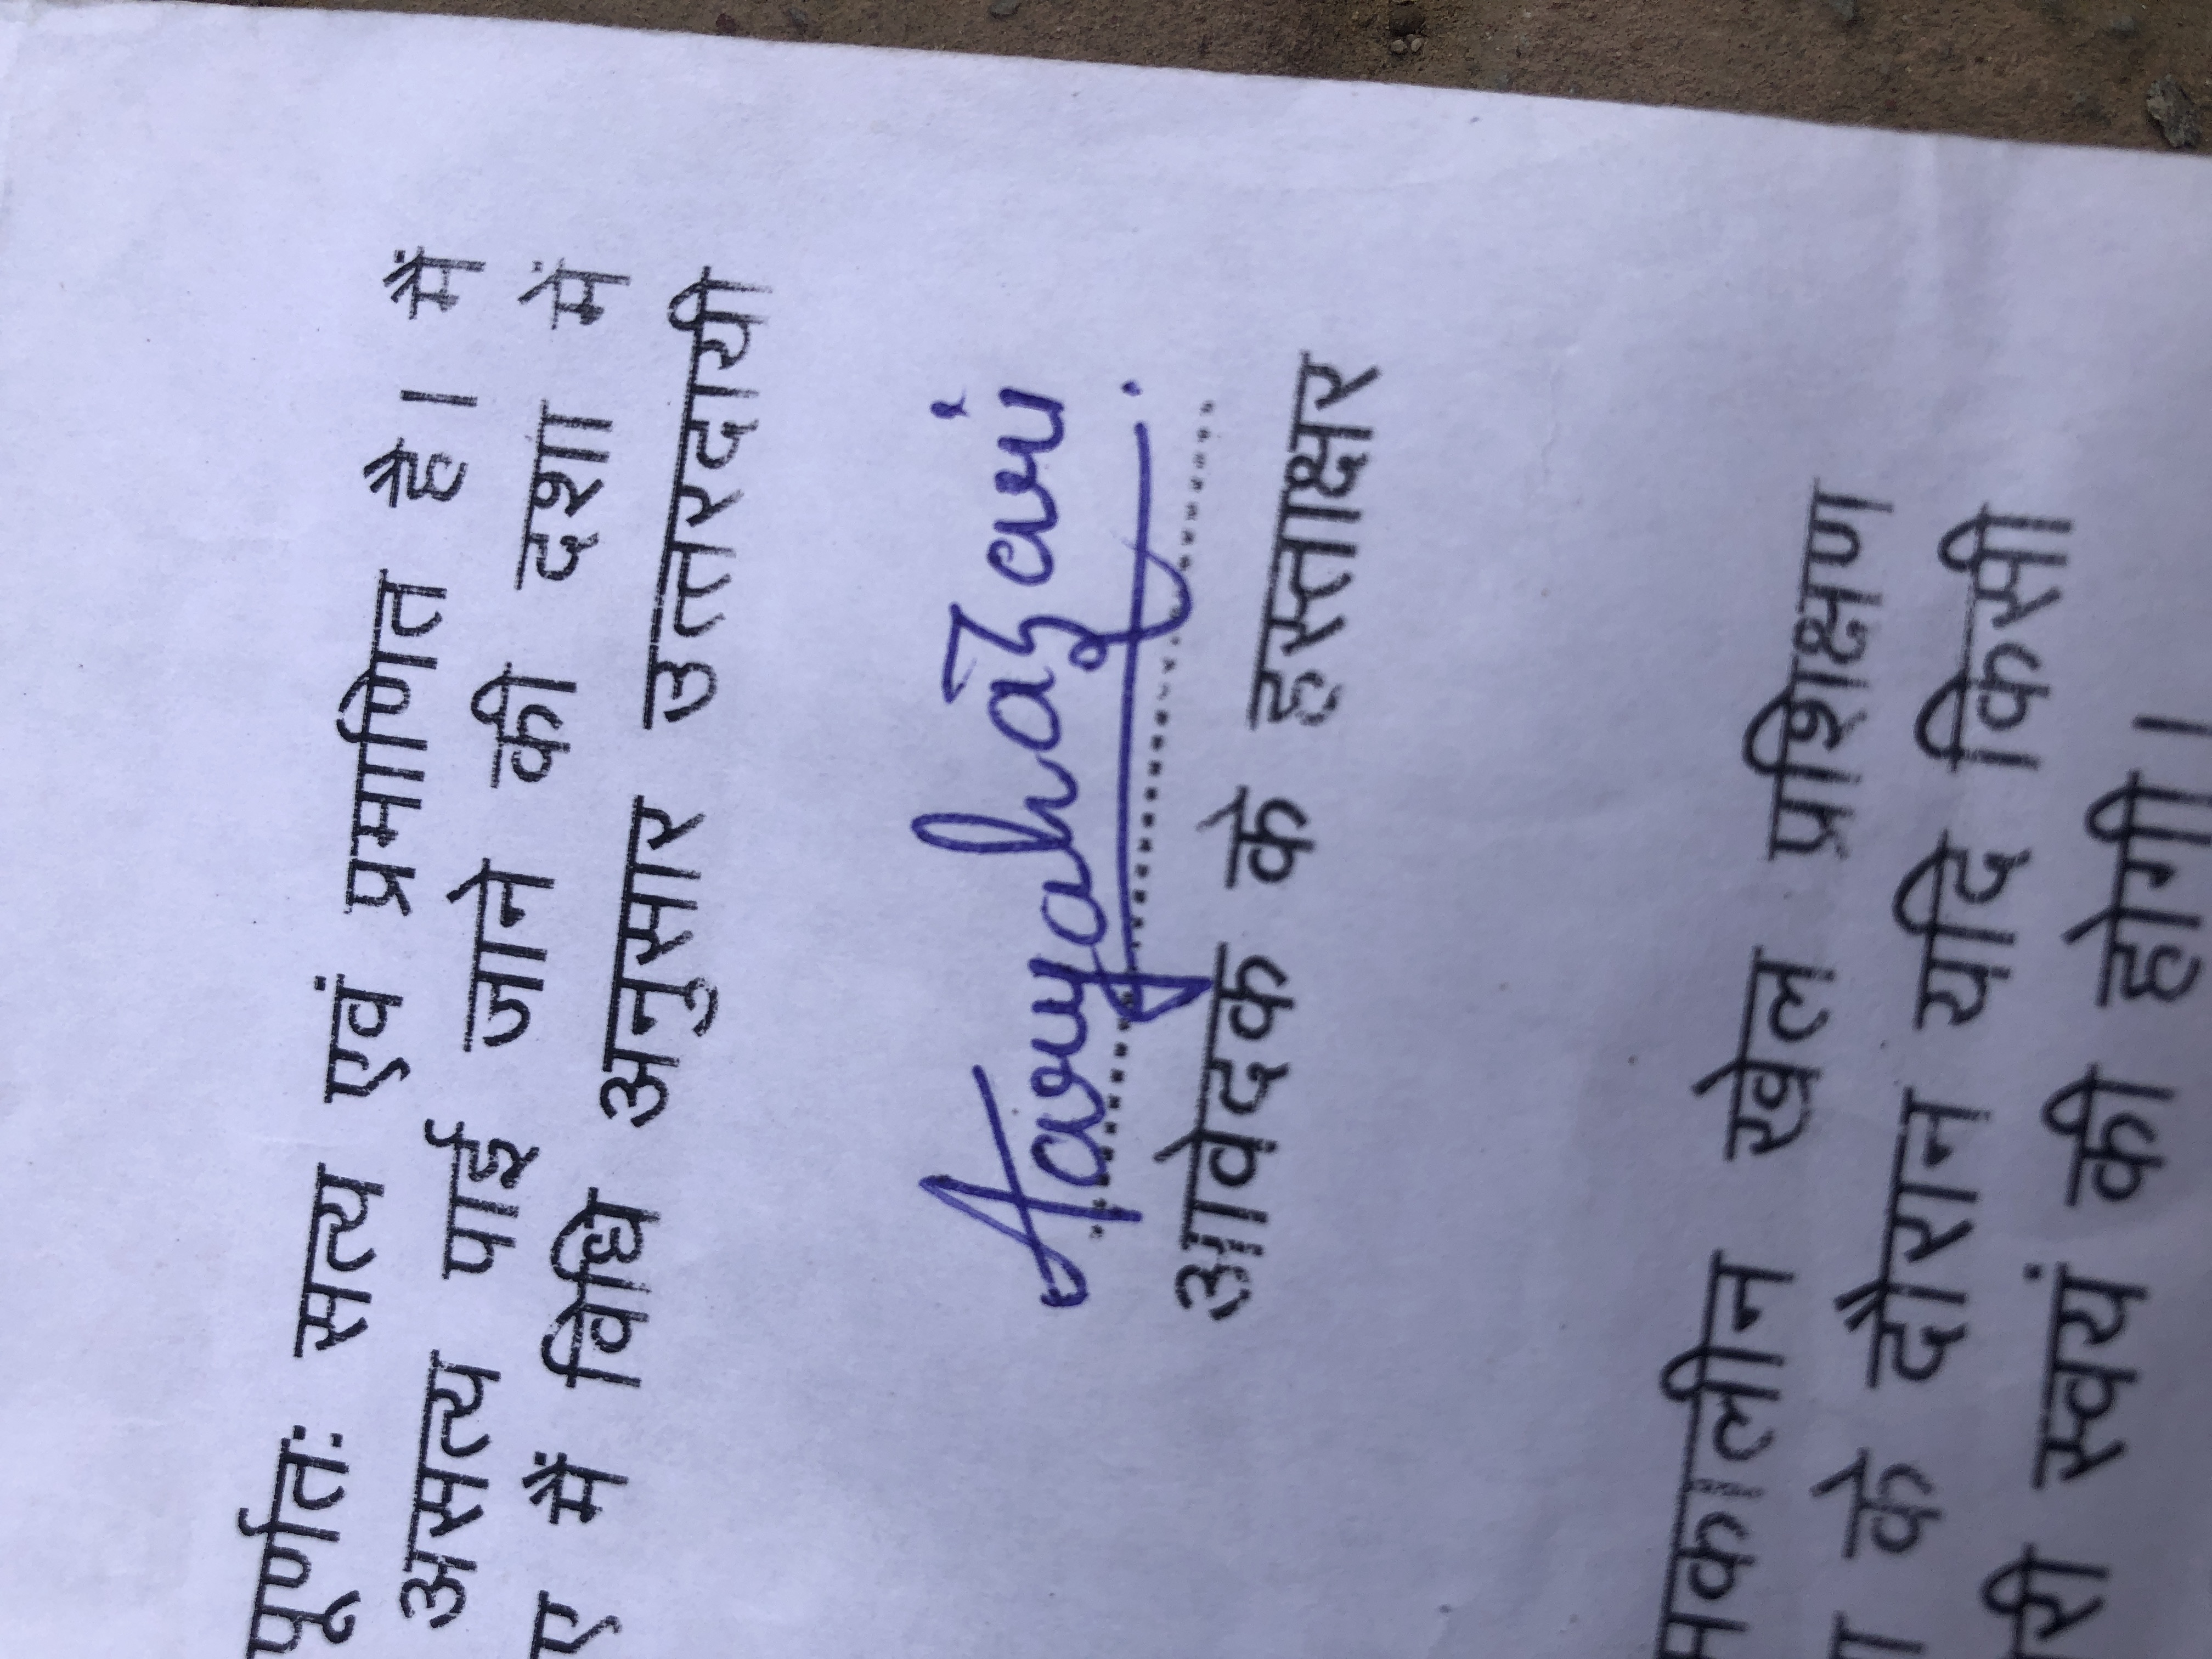 पूर्णतः सत्य एवं प्रमाणित है। मैं
असत्य पाई जाने की दशा में
में विधि अनुसार उत्तरदायी
आवेदक के हस्ताक्षर
खेल प्रशिक्षण
के दौरान यदि किसी
स्वयं की होगी।